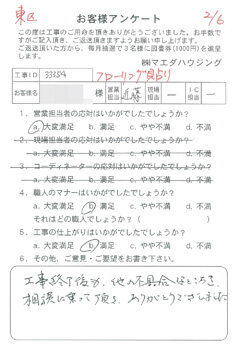 東区
お客様アンケート
2/6
この度は工事のご用命を頂きありがとうございました。お手数ですがご記入頂き、ご返送頂きますようお願い申し上げます。
ご返送頂いた方から、毎月抽選で3名様に図書券(1000円)を進呈します。
㈱マエダハウジング
工事ID 33354 フローリング貝占り
お客様名 様 営業担当 近藤 現場担当 ー IC担当 ー
1. 営業担当者の応対はいかがでしたでしょうか?
a.大変満足 b.満足 c.やや不満 d.不満
2. 現場担当者の応対はいかがでしたでしょうか?
a.大変満足 b.満足 c.やや不満 d.不満
3. コーディネーターの応対はいかがでしたでしょうか?
a.大変満足 b.満足 c.やや不満 d.不満
4. 職人のマナーはいかがでしたでしょうか?
a.大変満足 b.満足 c.やや不満 d.不満
それはどの職人でしょうか( )
5. 工事の仕上がりはいかがでしたでしょうか?
a.大変満足 b.満足 c.やや不満 d.不満
6. その他、ご意見・ご要望をお書き下さい。
工事終了後か、他の不具合なところ、
相談に乗って頂き、ありがとうございました